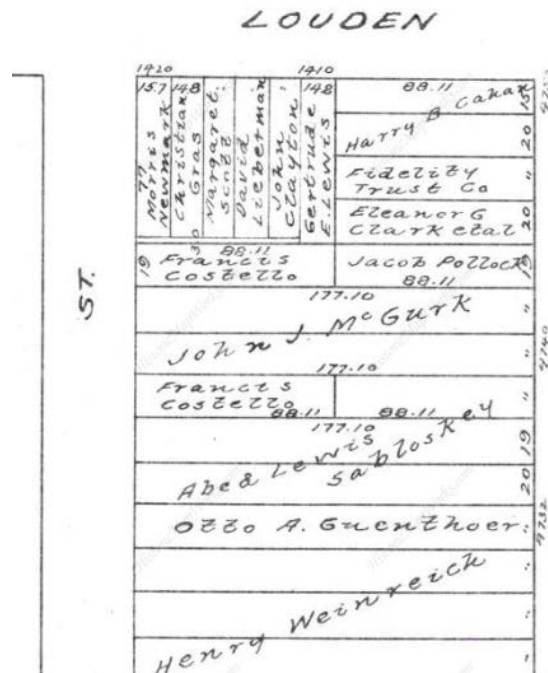 LOUDEN
1420
1410
15.7
77
Morris
Newmark
14.8
Christian
Gras
Margaret
Scott
David
Lieberman
John
Clayton
14.8
Gertrude
E. Lewis
88.11
Harry B Cahan
15.7
20
Fidelity
Trust Co
"
Eleanor G
Clark etal
20
30
88.11
19
Francis
Costello
Jacob Pollock
19
88.11
177.10
John J. McGurk
"
"
4740
177.10
Francis
Costello
88.11
88.11
"
177.10
Abe & Lewis
Sabloskey
19
20
4732
Otto A. Guenthoer
"
Henry Weinreich
"
"
"
ST.